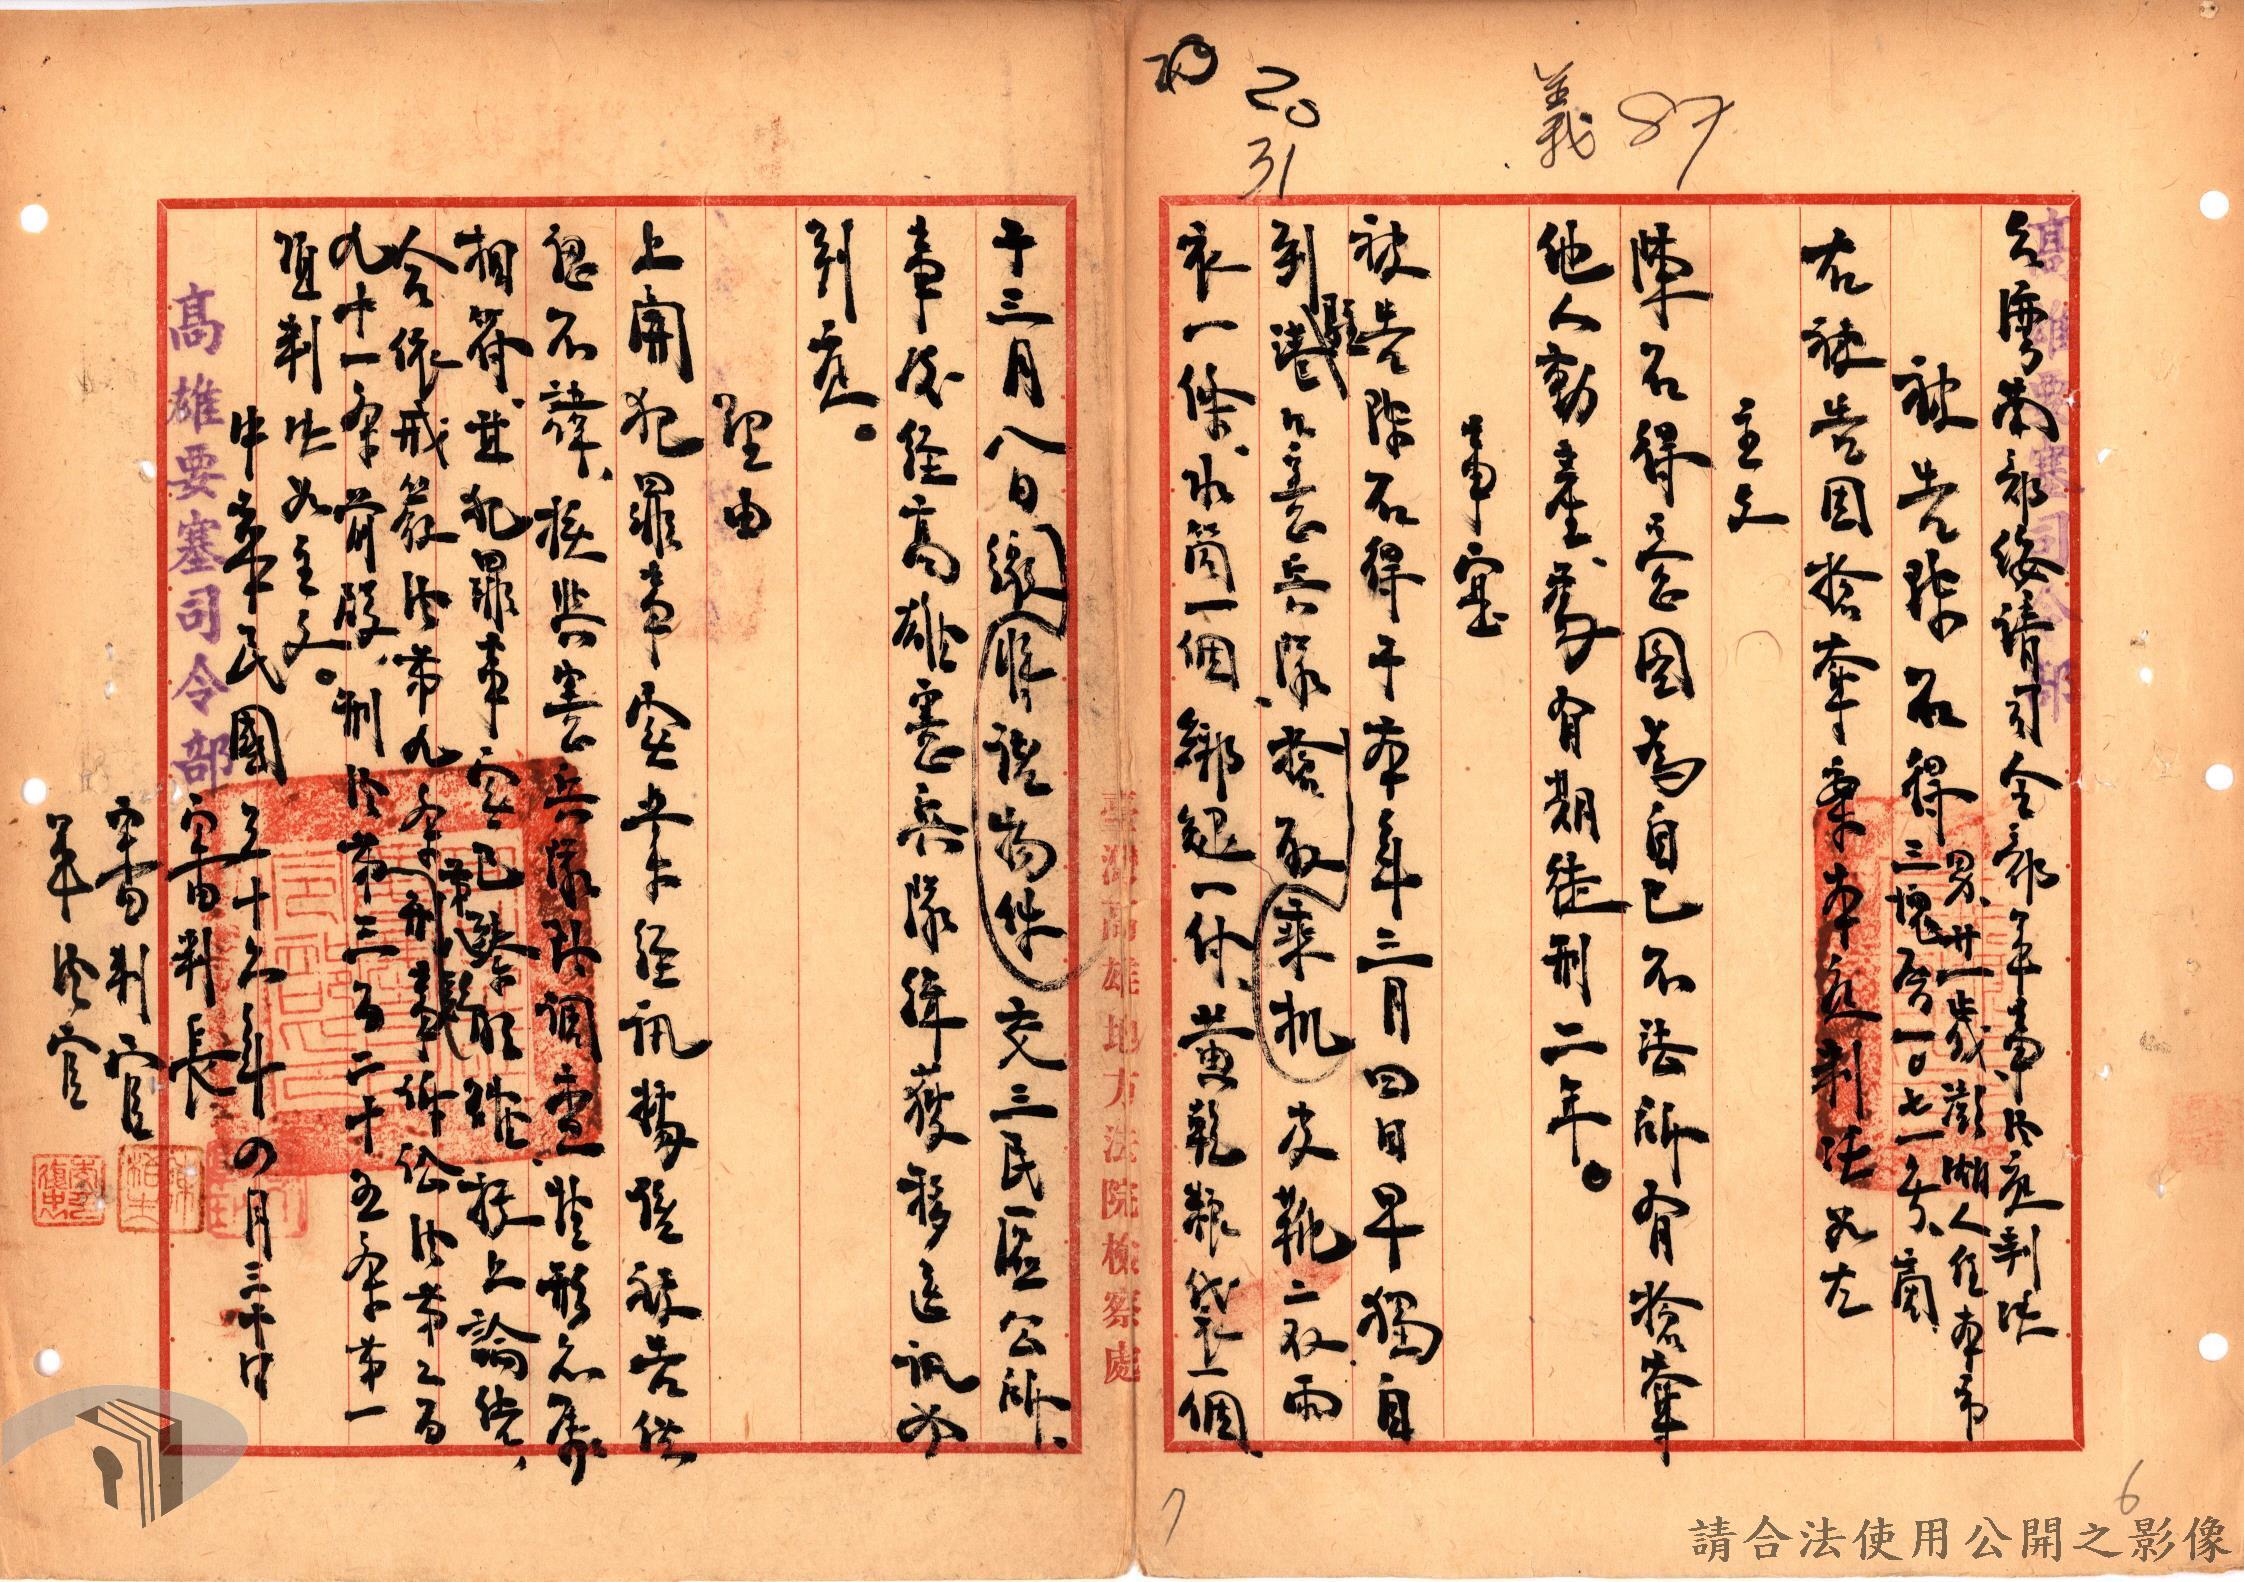 義 87
20
31
台灣南部綏靖司令部軍事法庭判決
被告陳石得 男 廿一歲 澎湖人 住本市
三塊厝一0七一號、商
右被告因搶奪案本庭判決如左
主文
陳石得意圖為自己不法所有搶奪
他人動產、處有期徒刑二年。
事實
被告陳石得于本年三月四日早獨自
到港口憲兵隊、搶取乘机皮靴二双雨
衣一條、水筒一個、綁腿一付、黃乾糧袋一個、
于三月八日繳曾該物件交三民區公所、
事後經高雄憲兵隊緝獲移送訊辦
到庭。
理由
上開犯罪事實業經訊據該被告供
認不諱、核與憲兵隊所調查情形亦屬
相符、其犯罪事實已臻明確、據上論結、
合依戒嚴法第九條第八款刑事訴訟法第二百
九十一條前段、刑法第三百二十五條第一
項判決如主文。
中華民國三十六年四月三十日
審判長
審判官
軍法官
高雄要塞司令部
高雄要塞司令部
臺灣高雄地方法院檢察處
6
7
請合法使用公開之影像